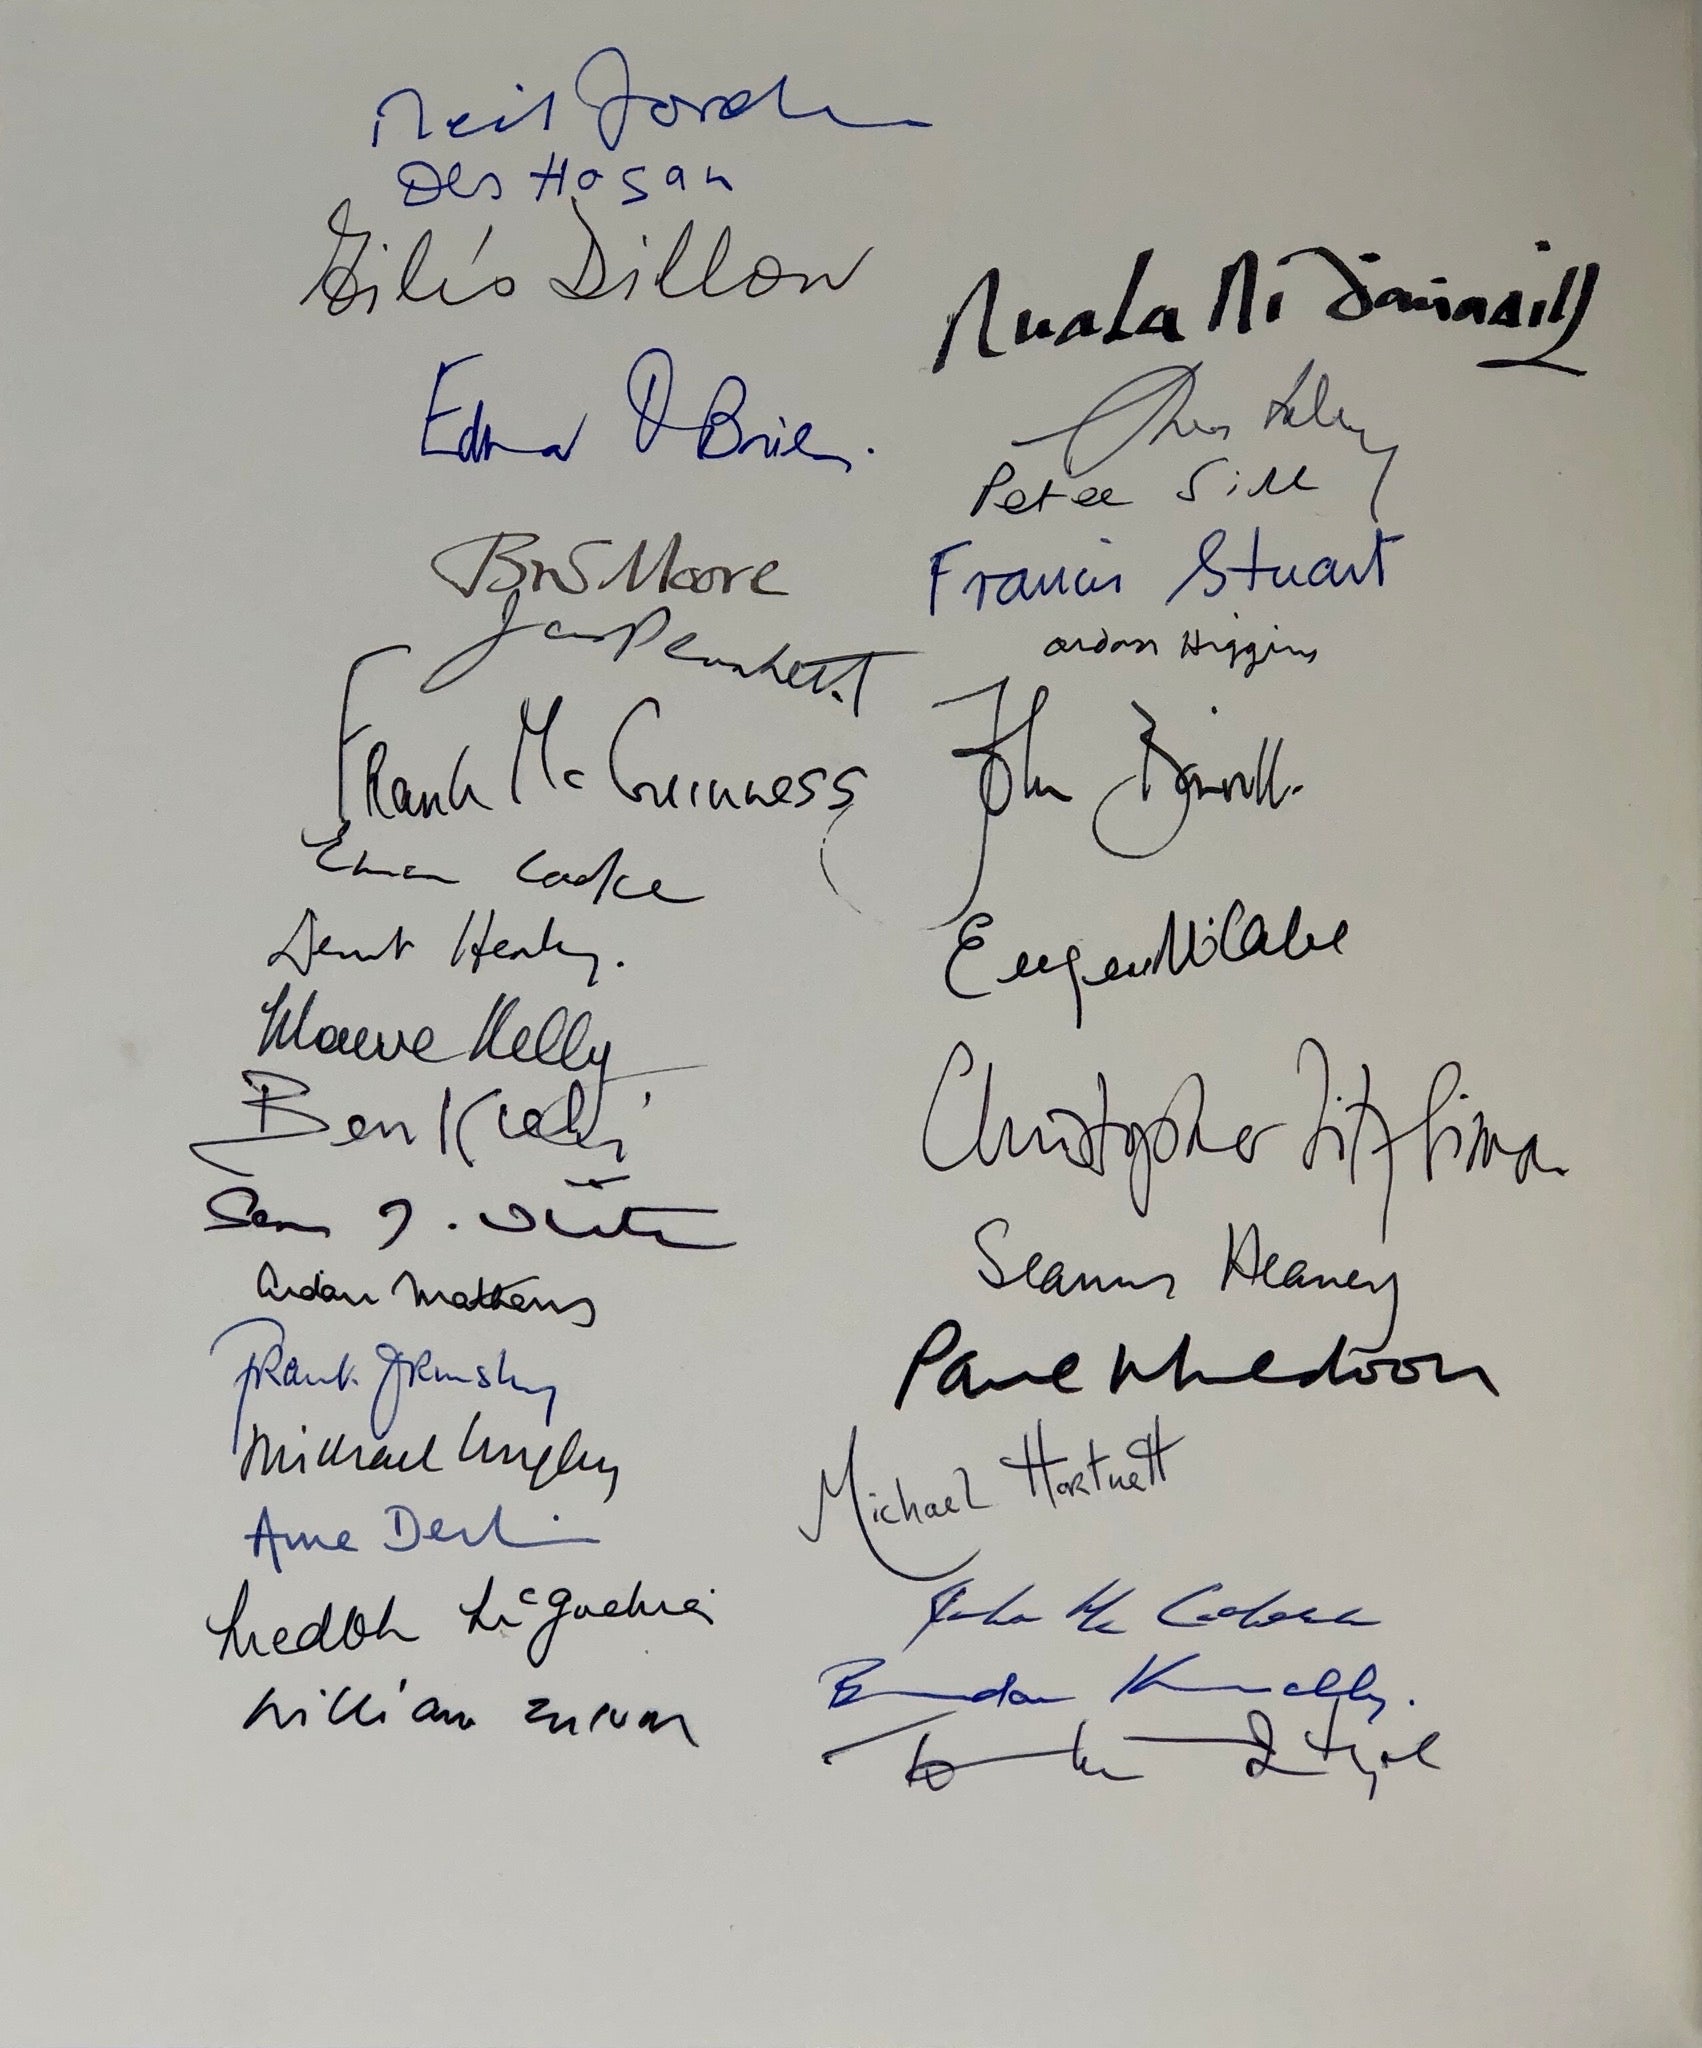 Neil Jordan
Des Hogan
Eilís Dillon
Edna O'Brien.
Brian Moore
Frank McGuinness
Emma Cooke
Dermot Healy.
Maeve Kelly
Ben Kiely
Aidan Mathews
Frank Ormsby
Michael Longley
Anne Devlin
Medbh McGuckian
William Trevor
Nuala Ní Dhomhnaill
Peter Sirr
Francis Stuart
Aidan Higgins
John Banville.
Eugene McCabe
Christopher Fitz-Simon
Seamus Heaney
Paul Muldoon
Michael Hartnett
Brendan Kennelly.